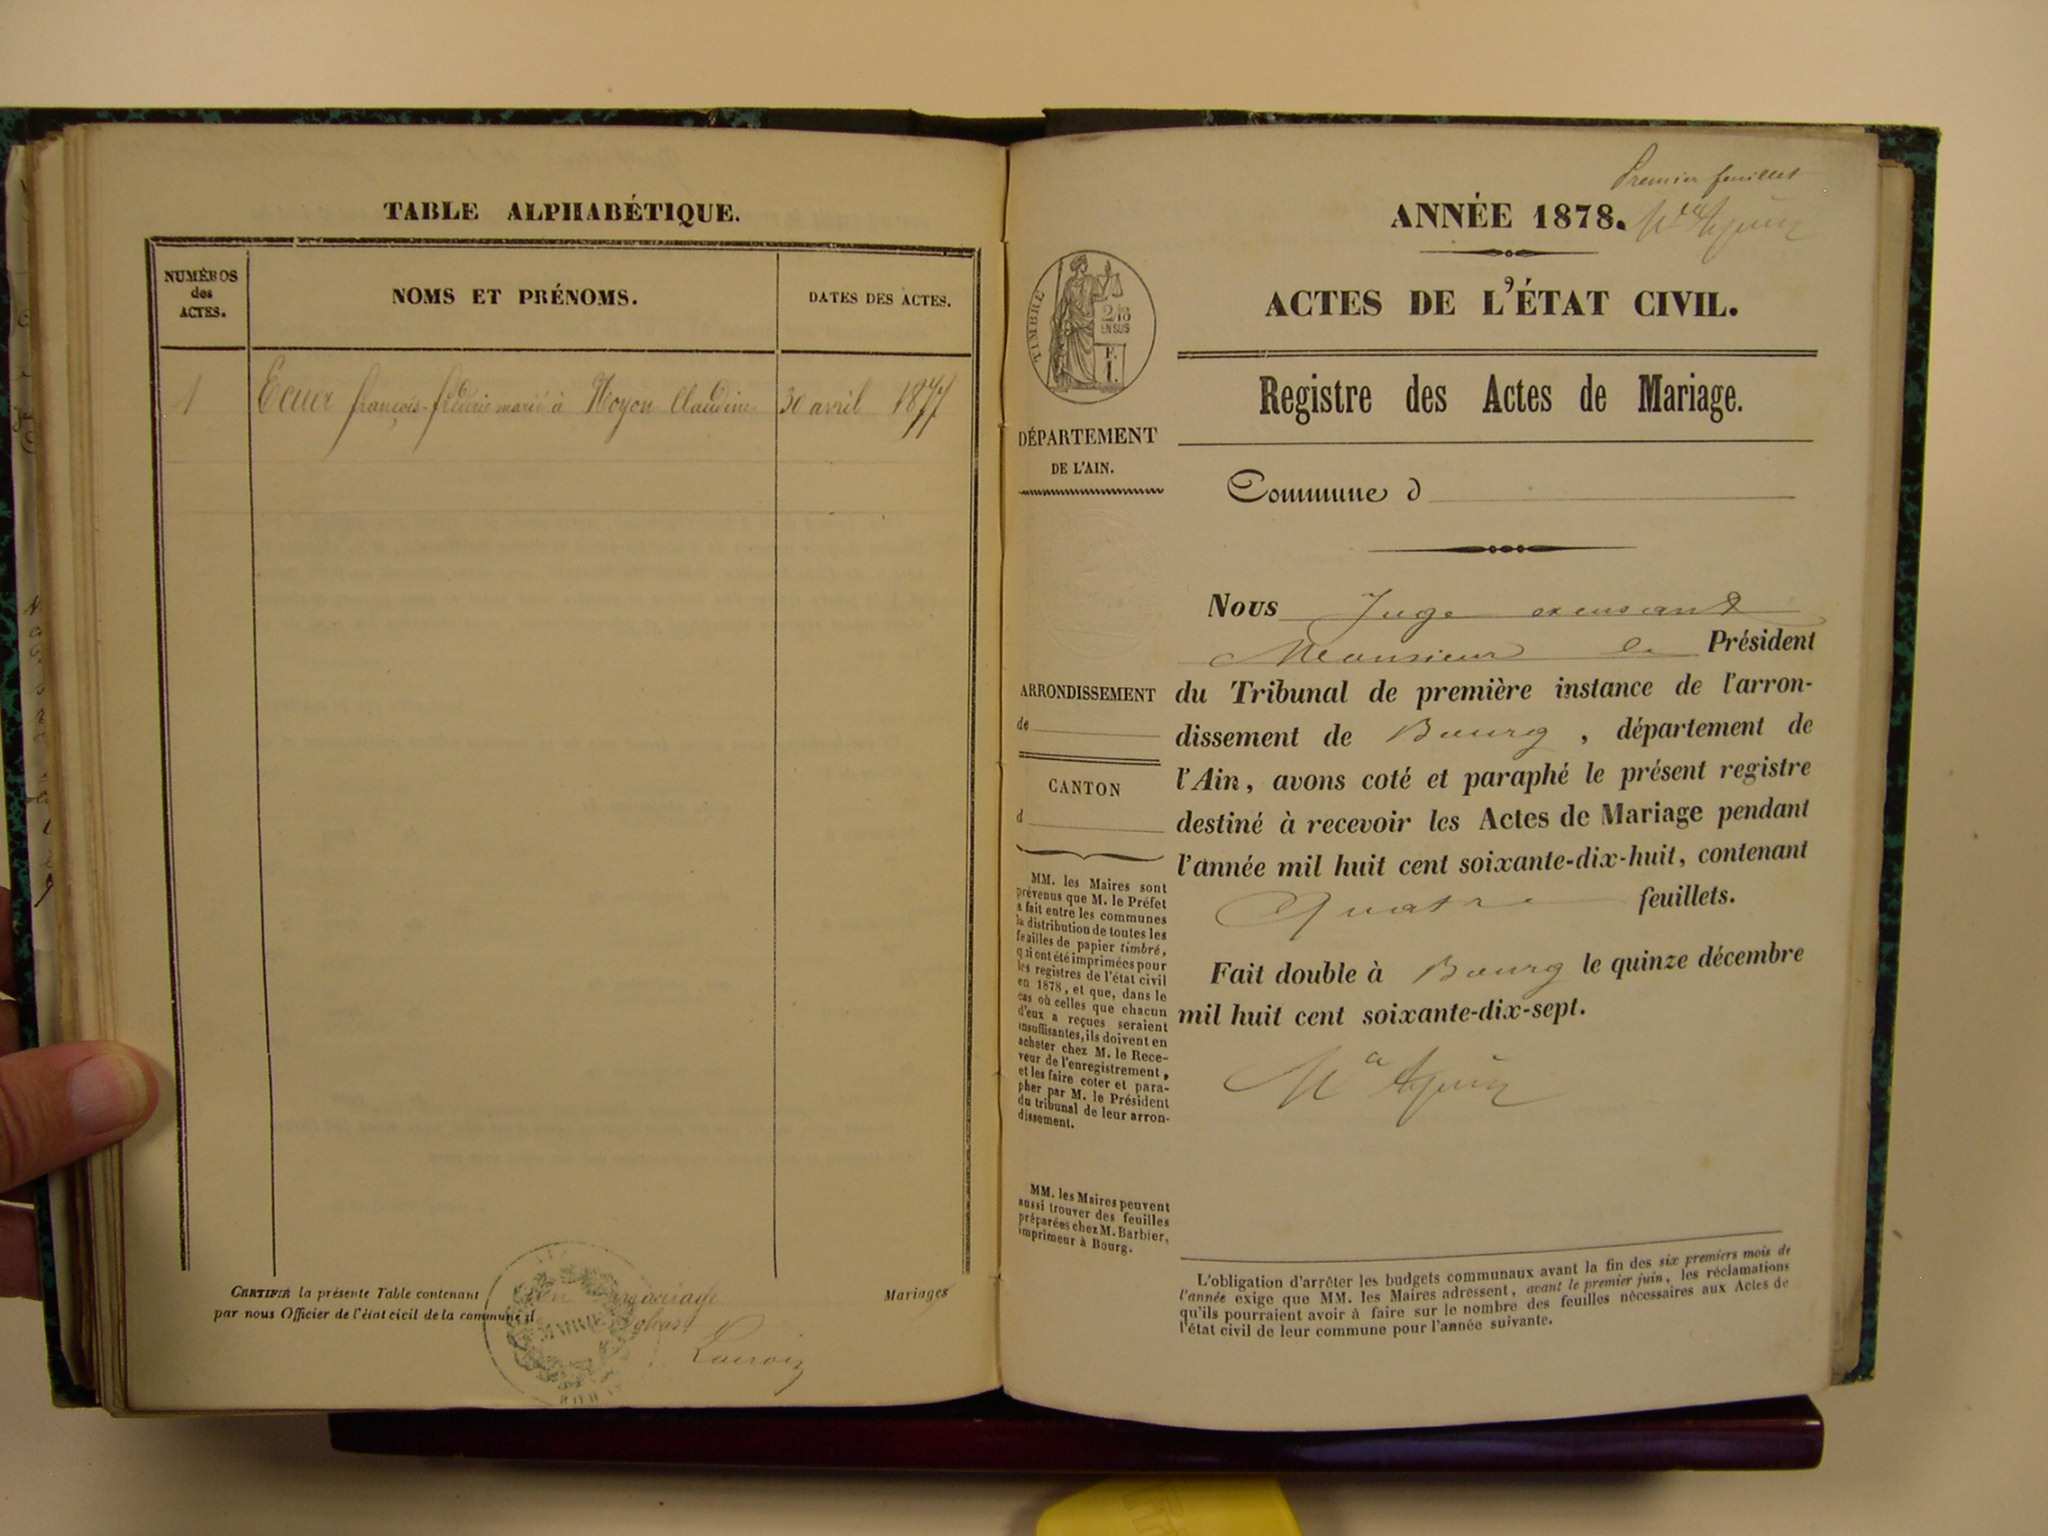 TABLE ALPHABÉTIQUE.
NUMÉROS
des
ACTES.
NOMS ET PRÉNOMS.
DATES DES ACTES.
1 Ecuer françois-fréderic marié à Noyon Claudine 30 avril 1877
CERTIFIÉ la présente Table contenant un mariage Mariages
par nous Officier de l'état civil de la commune d
Lacroix
Premier feuillet
ANNÉE 1878.
ACTES DE L'ÉTAT CIVIL.
Registre des Actes de Mariage.
TIMBRE
2/10
EN SUS
DÉPARTEMENT
DE L'AIN.
Commune d
Nous Juge excusant
Monsieur le Président
du Tribunal de première instance de l'arron-
dissement de Bourg, département de
l'Ain, avons coté et paraphé le présent registre
destiné à recevoir les Actes de Mariage pendant
l'année mil huit cent soixante-dix-huit, contenant
Quatre feuillets.
Fait double à Bourg le quinze décembre
mil huit cent soixante-dix-sept.
ARRONDISSEMENT
de
CANTON
d
MM. les Maires sont
prévenus que M. le Préfet
a fait entre les communes
la distribution de toutes les
feuilles de papier timbré,
qui ont été imprimées pour
les registres de l'état civil
en 1878, et que, dans le
cas où celles que chacun
d'eux a reçues seraient
insuffisantes, ils doivent en
acheter chez M. le Rece-
veur de l'enregistrement,
et les faire coter et para-
pher par M. le Président
du tribunal de leur arron-
dissement.
MM. les Maires peuvent
aussi trouver des feuilles
préparées chez M. Barbier,
imprimeur à Bourg.
L'obligation d'arrêter les budgets communaux avant la fin des six premiers mois de
l'année exige que MM. les Maires adressent, avant le premier juin, les réclamations
qu'ils pourraient avoir à faire sur le nombre des feuilles nécessaires aux Actes de
l'état civil de leur commune pour l'année suivante.